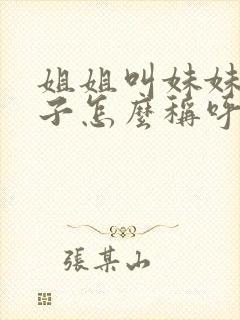 姐姐叫妹妹
子怎麼稱呼
張某山